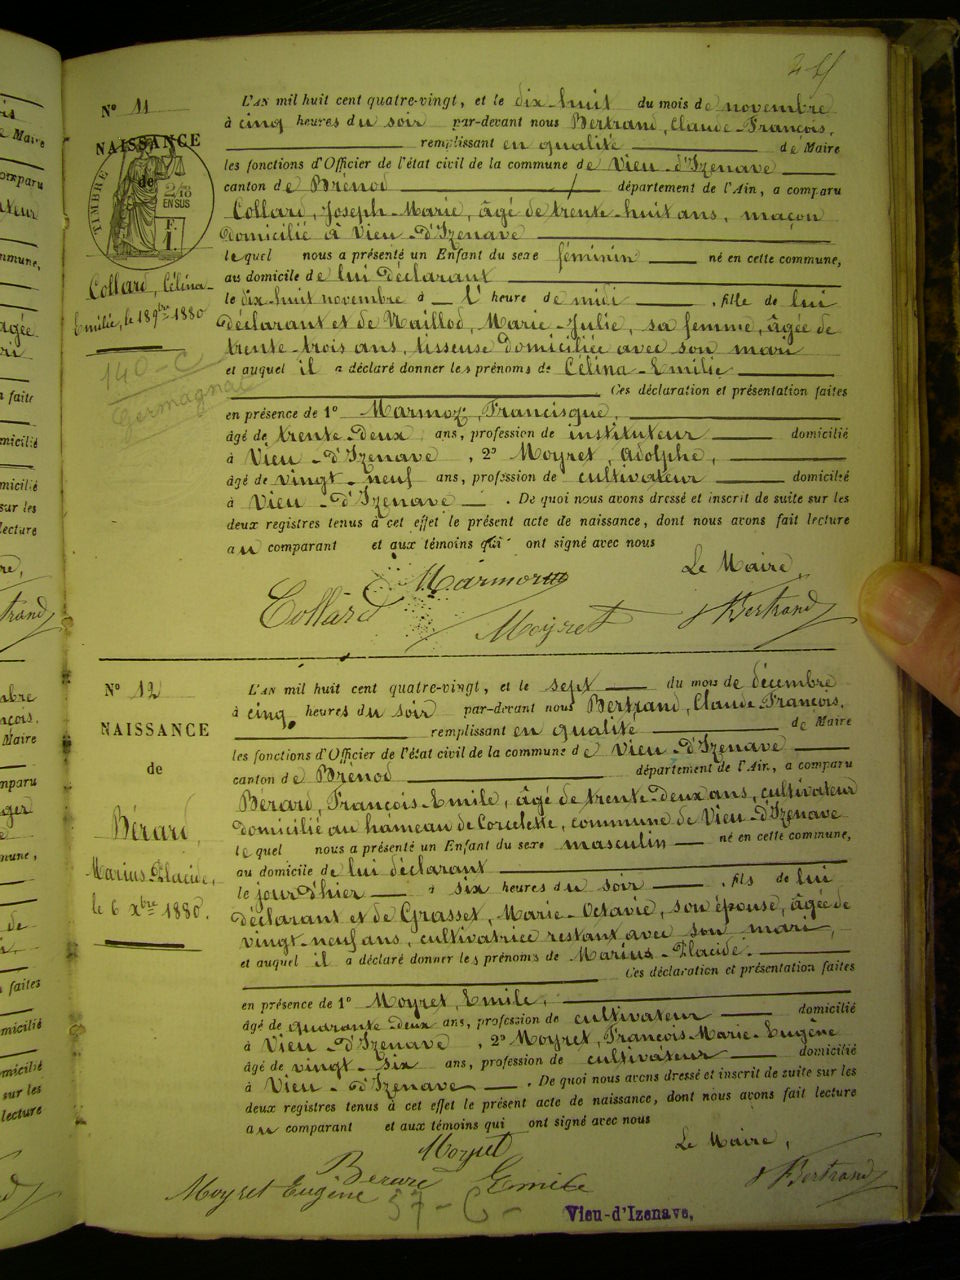 N° 11
NAISSANCE
de
TIMBRE
2/10
EN SUS
F.
1.
Collard, Célina-
Emilie, le 18 9bre 1880
140-C
Germagnat
L'AN mil huit cent quatre-vingt, et le dix-huit du mois de novembre
à cinq heures du soir par-devant nous Bertrand, Claude-François,
remplissant en qualité de Maire
les fonctions d'Officier de l'état civil de la commune de Vieu-d'Izenave
canton de Brénod département de l'Ain, a comparu
Collard, Joseph-Marie, âgé de trente-huit ans, maçon
domicilié à Vieu-d'Izenave
lequel nous a présenté un Enfant du sexe féminin né en cette commune,
au domicile de lui déclarant
le dix-huit novembre à l' heure de midi, fille de lui
déclarant et de Maillod, Marie-Julie, sa femme, âgée de
trente-trois ans, tisseuse domiciliée avec son mari
et auquel il a déclaré donner les prénoms de Célina-Emilie
Ces déclaration et présentation faites
en présence de 1° Marmoz, Francisque,
âgé de trente-deux ans, profession de instituteur domicilié
à Vieu-d'Izenave, 2° Moyret, Adolphe,
âgé de vingt-neuf ans, profession de cultivateur domicilié
à Vieu-d'Izenave. De quoi nous avons dressé et inscrit de suite sur les
deux registres tenus à cet effet le présent acte de naissance, dont nous avons fait lecture
au comparant et aux témoins qui ont signé avec nous
Le Maire,
Collard Marmoz Moyret Bertrand
N° 12
NAISSANCE
de
Bérard,
Marius-Placide,
le 6 xbre 1880.
L'AN mil huit cent quatre-vingt, et le sept du mois de décembre
à cinq heures du soir par-devant nous Bertrand, Claude-François,
remplissant en qualité de Maire
les fonctions d'Officier de l'état civil de la commune de Vieu-d'Izenave
canton de Brénod département de l'Ain, a comparu
Bérard, François-Emile, âgé de trente-deux ans, cultivateur
domicilié au hameau de Corcelette, commune de Vieu-d'Izenave
lequel nous a présenté un Enfant du sexe masculin né en cette commune,
au domicile de lui déclarant
le jour d'hier à six heures du soir, fils de lui
déclarant et de Grasset, Marie-Octavie, son épouse, âgée de
vingt-neuf ans, cultivatrice restant avec son mari,
et auquel il a déclaré donner les prénoms de Marius-Placide.
Ces déclaration et présentation faites
en présence de 1° Moyret, Emile,
âgé de quarante-deux ans, profession de cultivateur domicilié
à Vieu-d'Izenave, 2° Moyret, François-Marie-Eugène
âgé de vingt-six ans, profession de cultivateur domicilié
à Vieu-d'Izenave. De quoi nous avons dressé et inscrit de suite sur les
deux registres tenus à cet effet le présent acte de naissance, dont nous avons fait lecture
au comparant et aux témoins qui ont signé avec nous
Le Maire,
Moyret Emile
Bérard
Moyret Eugène
Bertrand
57-C-
Vieu-d'Izenave,